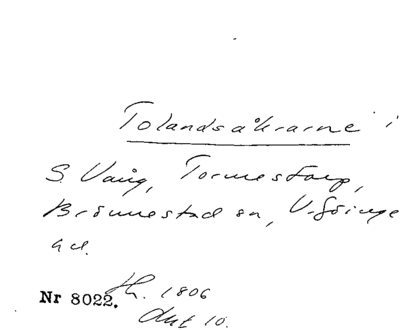 Tolandsåkrarne i
S. Vång, Tormestorp,
Brönnestad sn, V. Göinge
hd.
Nr 8022. Lh. 1806
Akt 10.